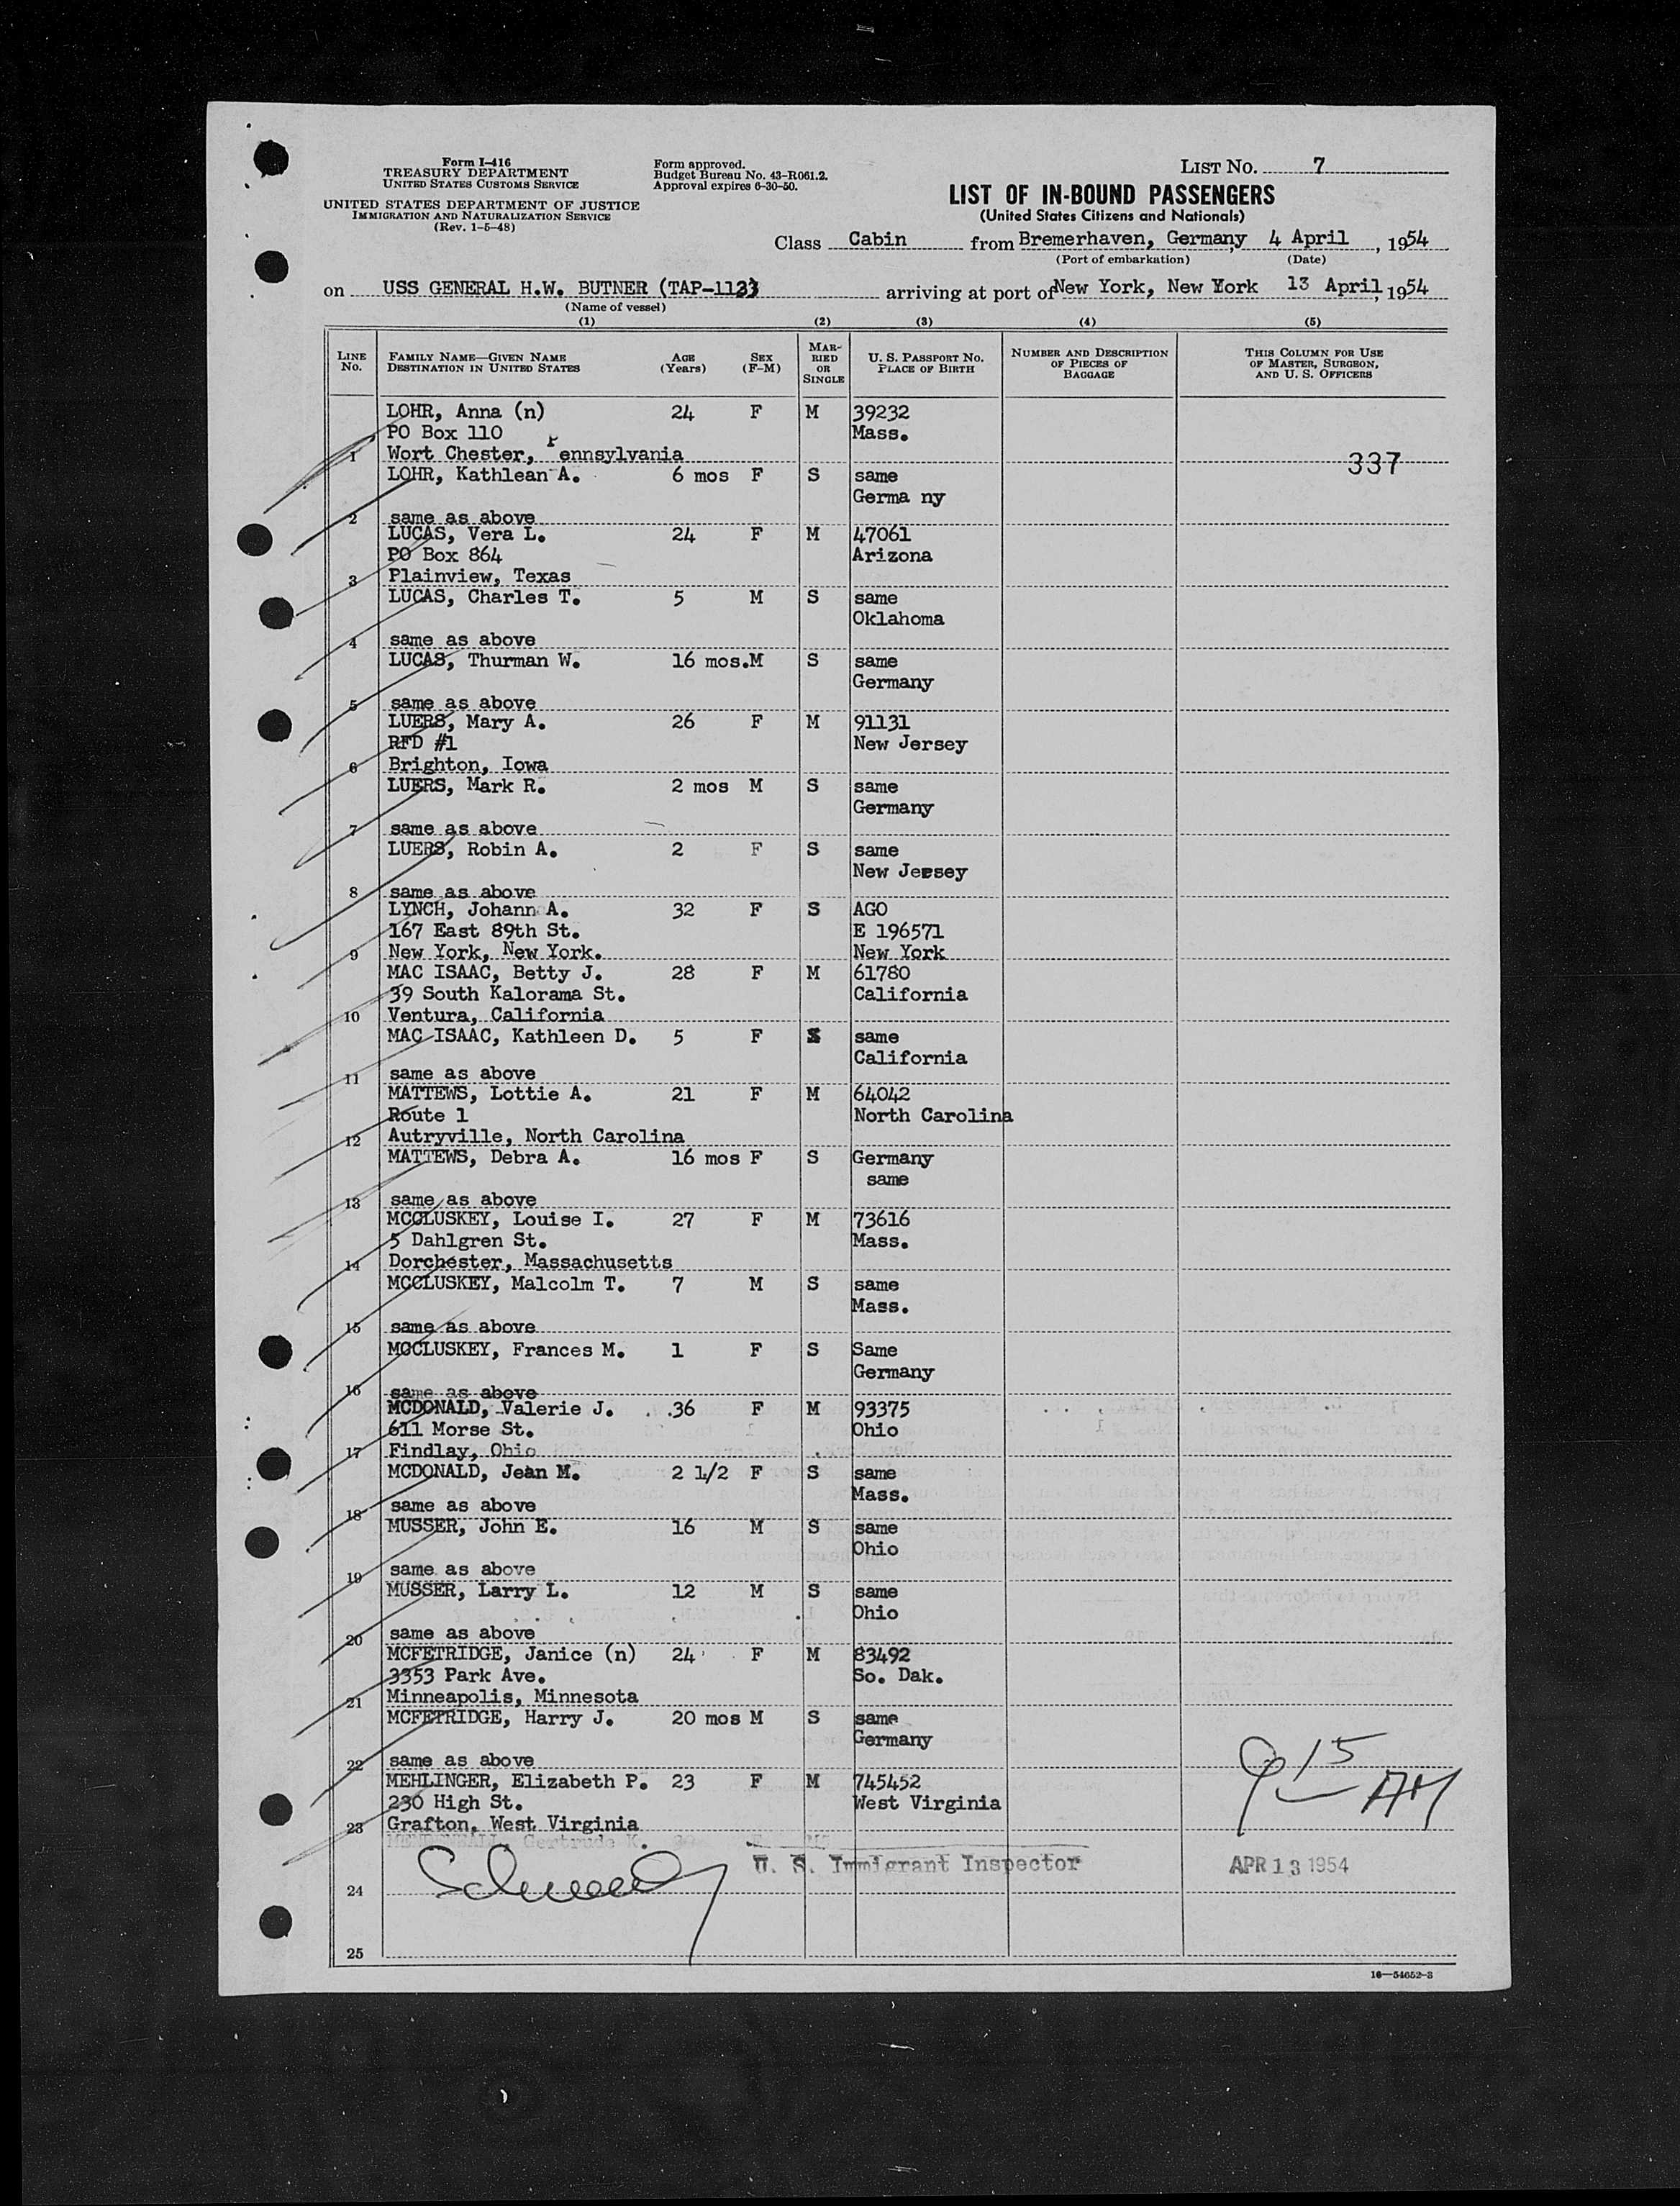 Form I-416
TREASURY DEPARTMENT
UNITED STATES CUSTOMS SERVICE
UNITED STATES DEPARTMENT OF JUSTICE
IMMIGRATION AND NATURALIZATION SERVICE
(Rev. 1-5-48)
Form approved.
Budget Bureau No. 43-R061.2.
Approval expires 6-30-50.
LIST NO. 7
LIST OF IN-BOUND PASSENGERS
(United States Citizens and Nationals)
Class Cabin from Bremerhaven, Germany 4 April, 1954
(Port of embarkation) (Date)
on USS GENERAL H.W. BUTNER (TAP-113) arriving at port of New York, New York 13 April, 1954
(Name of vessel)
(1) (2) (3) (4) (5)
LINE No. FAMILY NAME—GIVEN NAME DESTINATION IN UNITED STATES AGE (Years) SEX (F-M) MARRIED OR SINGLE U. S. PASSPORT NO. PLACE OF BIRTH NUMBER AND DESCRIPTION OF PIECES OF BAGGAGE THIS COLUMN FOR USE OF MASTER, SURGEON, AND U. S. OFFICERS
LOHR, Anna (n) 24 F M 39232
PO Box 110 Mass.
1 Wort Chester, Pennsylvania 337
LOHR, Kathlean A. 6 mos F S same
Germa ny
2 same as above
LUCAS, Vera L. 24 F M 47061
PO Box 864 Arizona
3 Plainview, Texas
LUCAS, Charles T. 5 M S same
Oklahoma
4 same as above
LUCAS, Thurman W. 16 mos. M S same
Germany
5 same as above
LUERS, Mary A. 26 F M 91131
RFD #1 New Jersey
6 Brighton, Iowa
LUERS, Mark R. 2 mos M S same
Germany
7 same as above
LUERS, Robin A. 2 F S same
New Jersey
8 same as above
LYNCH, Johann A. 32 F S AGO
167 East 89th St. E 196571
9 New York, New York. New York
MAC ISAAC, Betty J. 28 F M 61780
39 South Kalorama St. California
10 Ventura, California
MAC ISAAC, Kathleen D. 5 F S same
California
11 same as above
MATTEWS, Lottie A. 21 F M 64042
Route 1 North Carolina
12 Autryville, North Carolina
MATTEWS, Debra A. 16 mos F S Germany
same
13 same as above
MCCLUSKEY, Louise I. 27 F M 73616
5 Dahlgren St. Mass.
14 Dorchester, Massachusetts
MCCLUSKEY, Malcolm T. 7 M S same
Mass.
15 same as above
MCCLUSKEY, Frances M. 1 F S Same
Germany
16 same as above
MCDONALD, Valerie J. 36 F M 93375
611 Morse St. Ohio
17 Findlay, Ohio
MCDONALD, Jean M. 2 1/2 F S same
Mass.
18 same as above
MUSSER, John E. 16 M S same
Ohio
19 same as above
MUSSER, Larry L. 12 M S same
Ohio
20 same as above
MCFETRIDGE, Janice (n) 24 F M 83492
3353 Park Ave. So. Dak.
21 Minneapolis, Minnesota
MCFETRIDGE, Harry J. 20 mos M S same
Germany
22 same as above
MEHLINGER, Elizabeth P. 23 F M 745452
230 High St. West Virginia
23 Grafton, West Virginia
9 15 AM
Gertrude K.
U. S. Immigrant Inspector APR 13 1954
24
25
16—54652-3